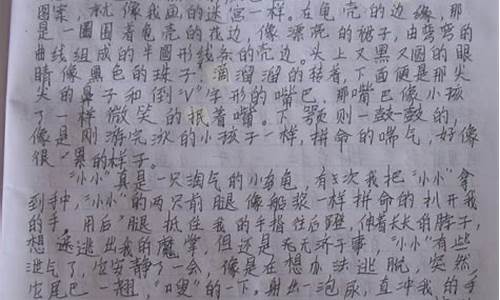 图案,就像我画的迷宫一样。在龟壳的边缘,那
是一圈围着龟壳的花边,像漂亮的裙子,由弯弯的
曲线组成的半圆形线条的壳边。头上又黑又圆的眼
睛像黑色的珠子,滴溜溜的转着,下面便是那尖
尖的鼻子和倒"V"字形的嘴巴,那嘴巴像小孩
子一样微笑的抿着嘴。下颚则一鼓一鼓的,
像是刚游完泳的小孩子一样,拼命的喘气,好像
很累的样子。
"小小"真是一只淘气的小乌龟,有一次我把"小小"拿
到手中,"小小"的两只前腿像船桨一样拼命的扒开我
的手,用后腿抵住我的手指往后蹬,伸着长长的脖子,
想逃出我的魔掌,但还是无无济于事。"小小"有些
泄气了,它安静了一会,像是在想办法逃脱,突然,
它尾巴一翘,"嗖"的一下,射出一泡尿,直冲我的手